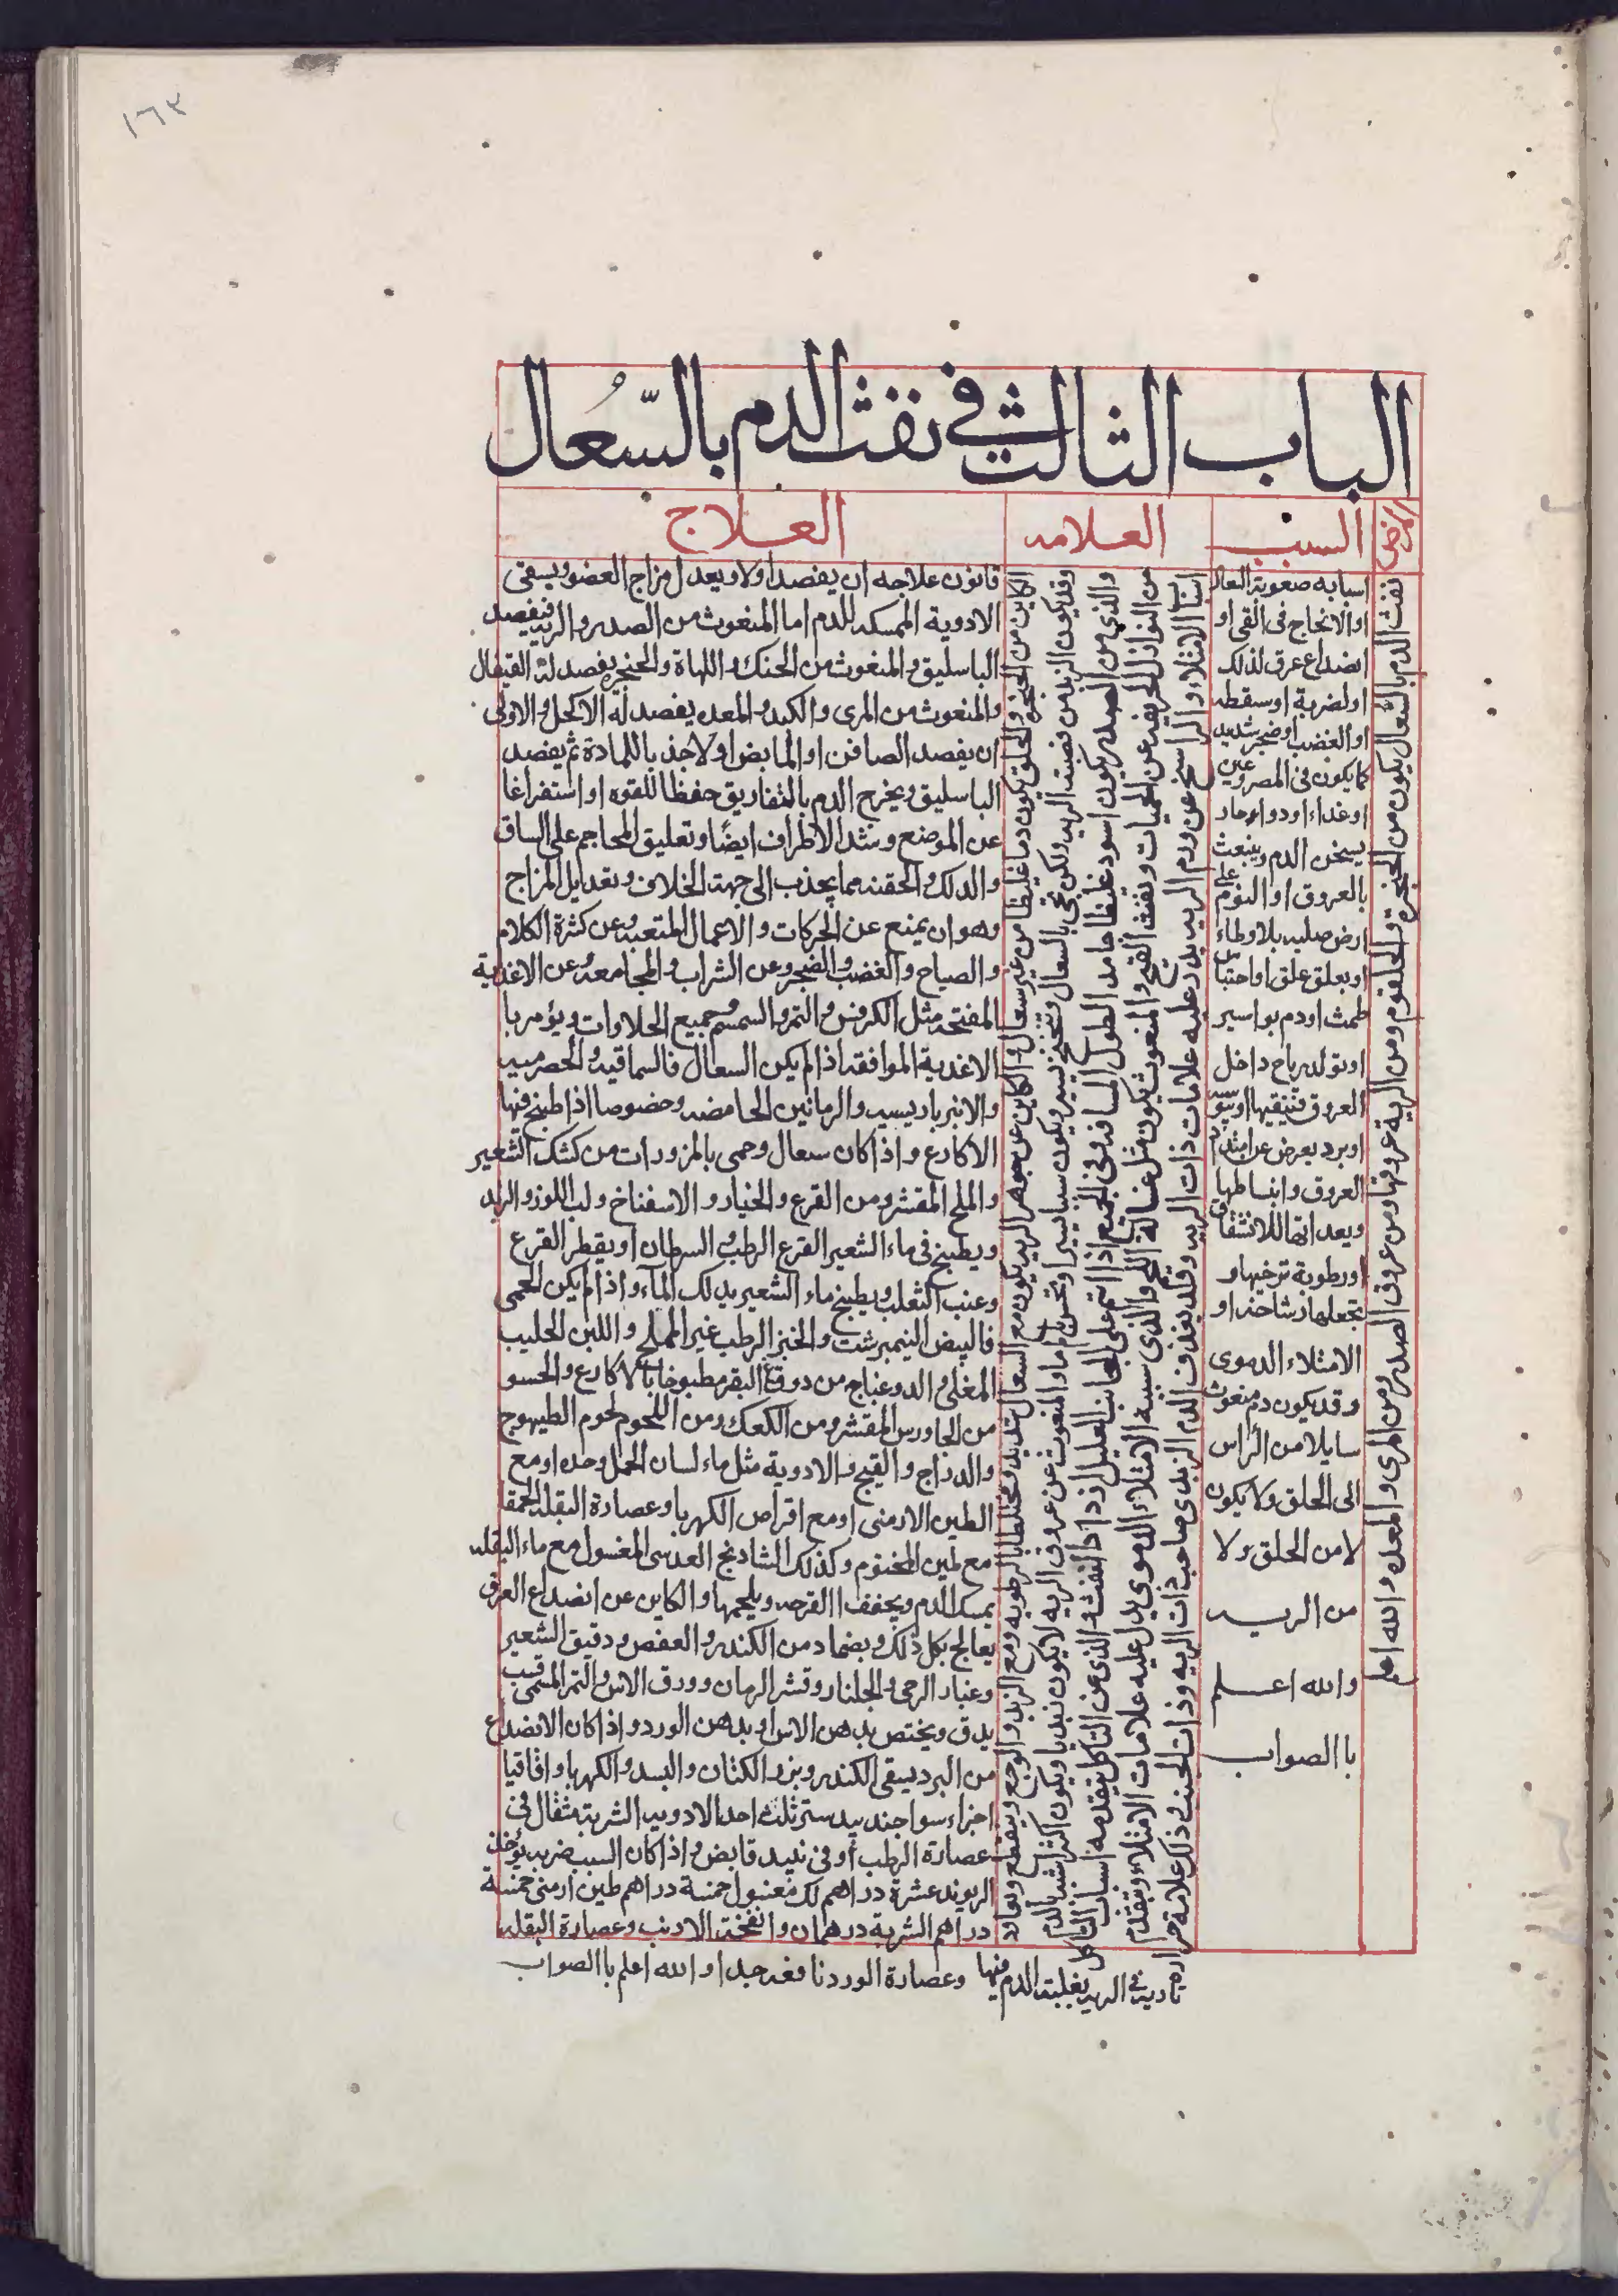 ١٦٣
الباب الثالث في نفث الدم بالسّعُال
المرض
السبب
العلامه
العلاج
نفث الدم بالسعال يكون من الحنجرة والحلقوم ومن الرية عروقها ومن عروق الصدر ومن المرى والمعده والله اعلم
اسبابه صعوبة السعال
او الانخاج في القى او
انصداع عرق لذلك
اولضربة اوسقطه
او الغضب اوضجر شديد
كما يكون في المصروعين
اوغداء اودواء حار
يسخن الدم وينبعث
بالعروق او النوم على
ارض صلبه بلا وطاء
اوبعلق علق او احتباس
طمث اودم بواسير
اوتولد رياح داخل
العروق
اوبرد يعرض عن
العروق وانبساطها
ويعداتها للانشقاق
اورطوبة ترخيها و
تجعلها او
الامتلاء الدموى
وقد يكون دم منعوث
سايلا من الراس
الى الحلق ولا يكون
لامن الحلق ولا
من الريه
والله اعلم
باالصواب
الكاين من الحنجره والحلق يكون دما غليظا من غير سعال والكاين عن جوهر الريه يكون مع السعال شديد ومختلطا بالرطوبه ومع الزبد والوجع وينقطع ويعاود
وقد يكون الزبد من قصبة الريه ولكن يجى بالسعال وتنحنح يسير ويكون سيبا يسيرا ويحس بالم ما والمنعوث عن عروق الريه لا يكون زبديا ويكون اكثر اشد بالدم
والذي من الصدر يكون اسود غليظا جامد الطول المسافه وفي الجميع اذا اتم على الجانب العليل ازداد النفث والذي عن التاكل يتقدمه اسباب التاكل
من النوازل الحريفه عن الحميات ونفث القيح والمنعوث يكون مثل غسالة اللحم والذي سببه الامتلاء الدموى يدل عليه علامات الامتلاء وتقدم
اسباب الامتلاء والراسخ عن ورم الريه يدل عليه علامات ذات الريه وقد يقذف الدم الزبدى صاحب ذات الريه وذات الجنب ذلك علامة حرارة
ناديه في الريه يغلبه الدم فيها
قانون علاجه ان يفصد اولا ويعدل مزاج العضو ويسقى
الادوية الممسكه للدم اما المنعوث من الصدر والريه فيفصد
الباسليق والمنعوث من الحنك واللهاة والحنجره يفصد له القيفال
والمنعوث من المرى والكبد والمعده يفصد له الاكحل والاولى
ان يفصد الصافن او المابض اولا جذبا للمادة ثم يفصد
الباسليق ويخرج الدم بالتفاريق حفظا للقوه او استفراغا
عن الموضع وشد الاطراف ايضًا وتعليق المحاجم على الساق
والدلك والحقنه مما يجذب الى جهة الخلاف وتعديل المزاج
وهو ان يمنع عن الحركات والاعمال المتعبه وعن كثرة الكلام
والصياح والغضب والضجر وعن الشراب والمجامعه وعن الاغذية
المفتحه مثل الكرفس والتمر والسمسم وجميع الحلاوات ويؤمر با
الاغذية الموافقه اذا لم يكن السعال فالسماقيه والحصرميه
والانبرباريسيه والرمانين الحامضه وخصوصا اذا طبخ فيها
الاكارع واذا كان سعال وحمى بالمزورات من كشك الشعير
والملح المقشر ومن القرع والخيار والاسفناخ ولب اللوز والريد
ويطبخ في ماء الشعير القرع الرطب والسرطان او يقطر القرع
وعنب الثعلب ويطبخ ماء الشعير بدلك المآء واذا لم يكن الحمى
فالبيض النيمبرشت والخبز الرطب غير المملح واللبن الحليب
المغلى والدوغباج من دوق البقر مطبوخا بالاكارع والحسو
من الجاورس المقشر ومن الكعك ومن اللحوم لحوم الطيهوج
والدراج والقبج والادوية مثل ماء لسان الحمل وحده اومع
الطين الارمنى اومع اقراص الكهربا وعصارة البقله الحمقا
مع لمين المختوم وكذلك الشادنج العدسى المغسول مع ماء البقله
يمسك الدم ويجفف االقرحه ويلحمها والكاين عن انصداع العرق
يعالج بكل ذلك ويضماد من الكندر والعفص ودقيق الشعير
وغبار الرحى والجلنار وقشر الرمان وورق الاس والتمر المسمى قسب
يدق ويختص بدهن الاس او بدهن الورد واذا كان الانصداع
من البرد يسقى الكندر وبزر الكتان والبسد والكهربا واقاقيا
اجزاء سوا جندبيدستر ثلث احد الادويه الشربة مثقال في
عصارة الرطب او في نبيد قابض واذا كان السبب ضربه يؤخذ
الريوند عشرة دراهم لك مغسول خمسة دراهم طين ارمنى خمسة
دراهم الشربة درهمان وانفخة الارنب وعصارة البقله
وعصارة الورد نافعه جدا والله اعلم باالصواب